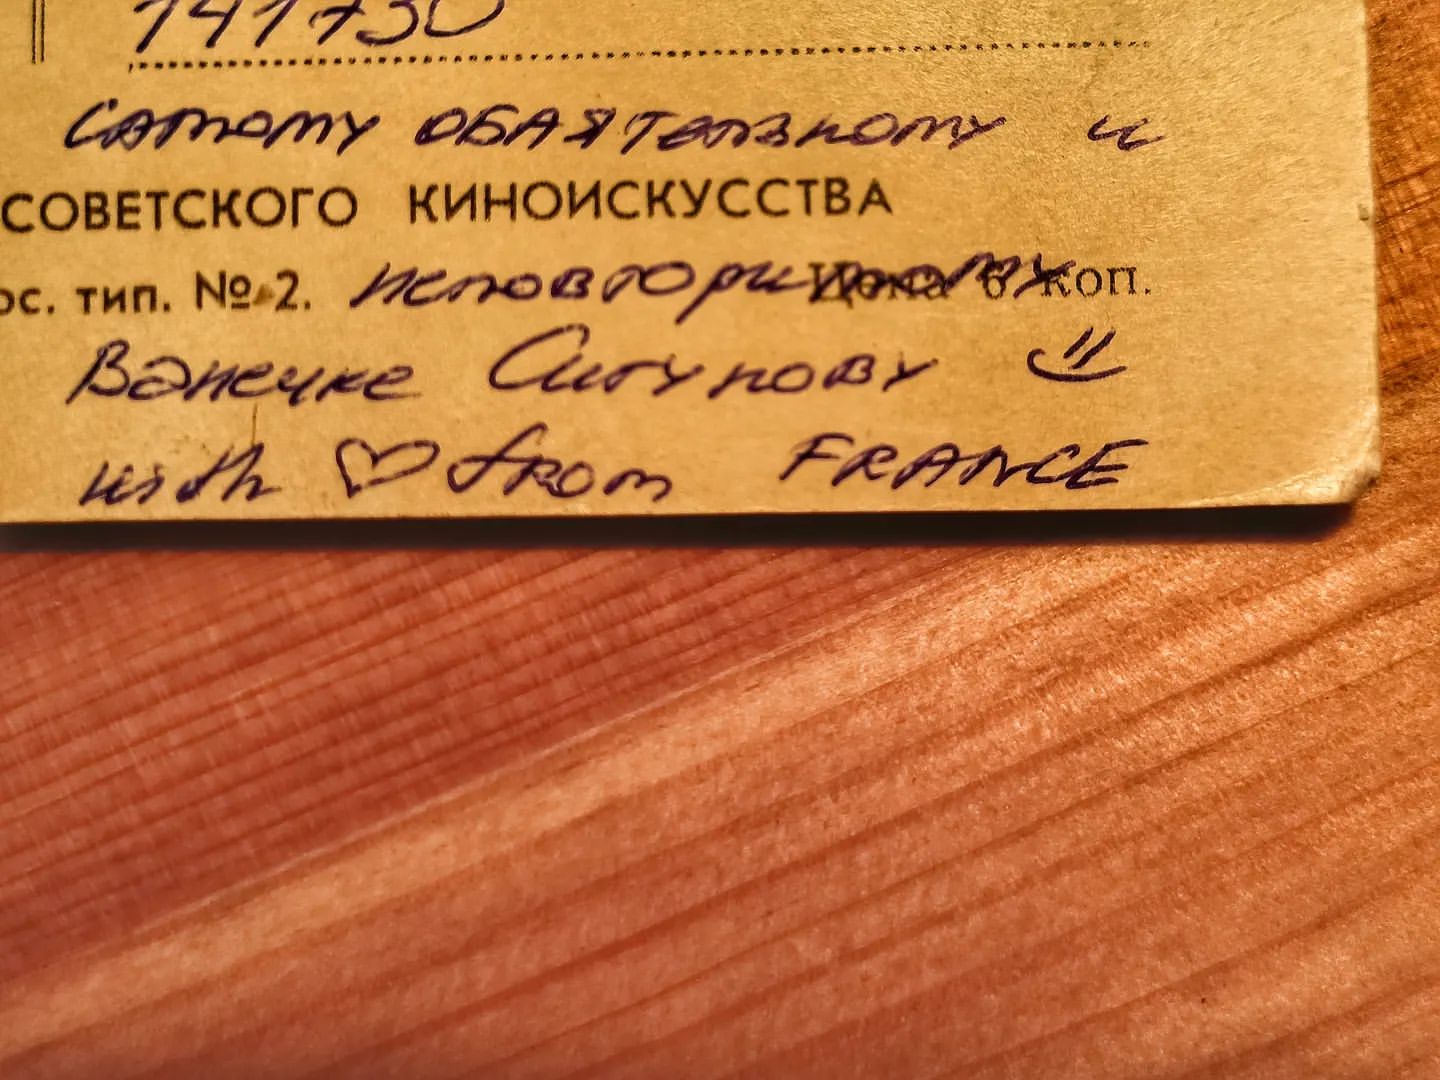 141730
самому обаятельному и
СОВЕТСКОГО КИНОИСКУССТВА
ос. тип. № 2. неповторимому Цена 6 коп.
Ванечке Сигунову
with from FRANCE